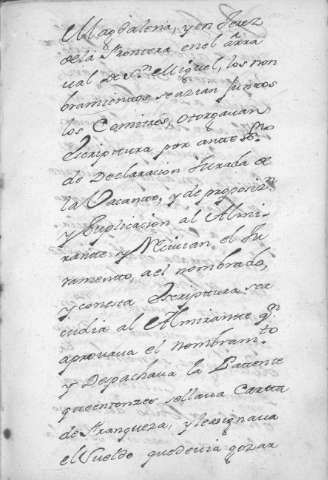 Magdalena, y en Jerez
de la Frontera en el Arra
val de Sn. Miguel, los nom
bramientos se azian juntos
los Comitres, otorgavan
Escriptura por ante Sno
de Declaracion Jurada de
la Vacante, y de proposizn.
y Suplicacion al Almi
rante y Recivian el Ju
ramento, a el nombrado,
y con esta Escriptura se
cudia al Almirante qe.
aprovava el nombramto
y Despachava la Patente
que entonzes se llava Carta
de Franqueza, y le signava
el Sueldo que devia gozar